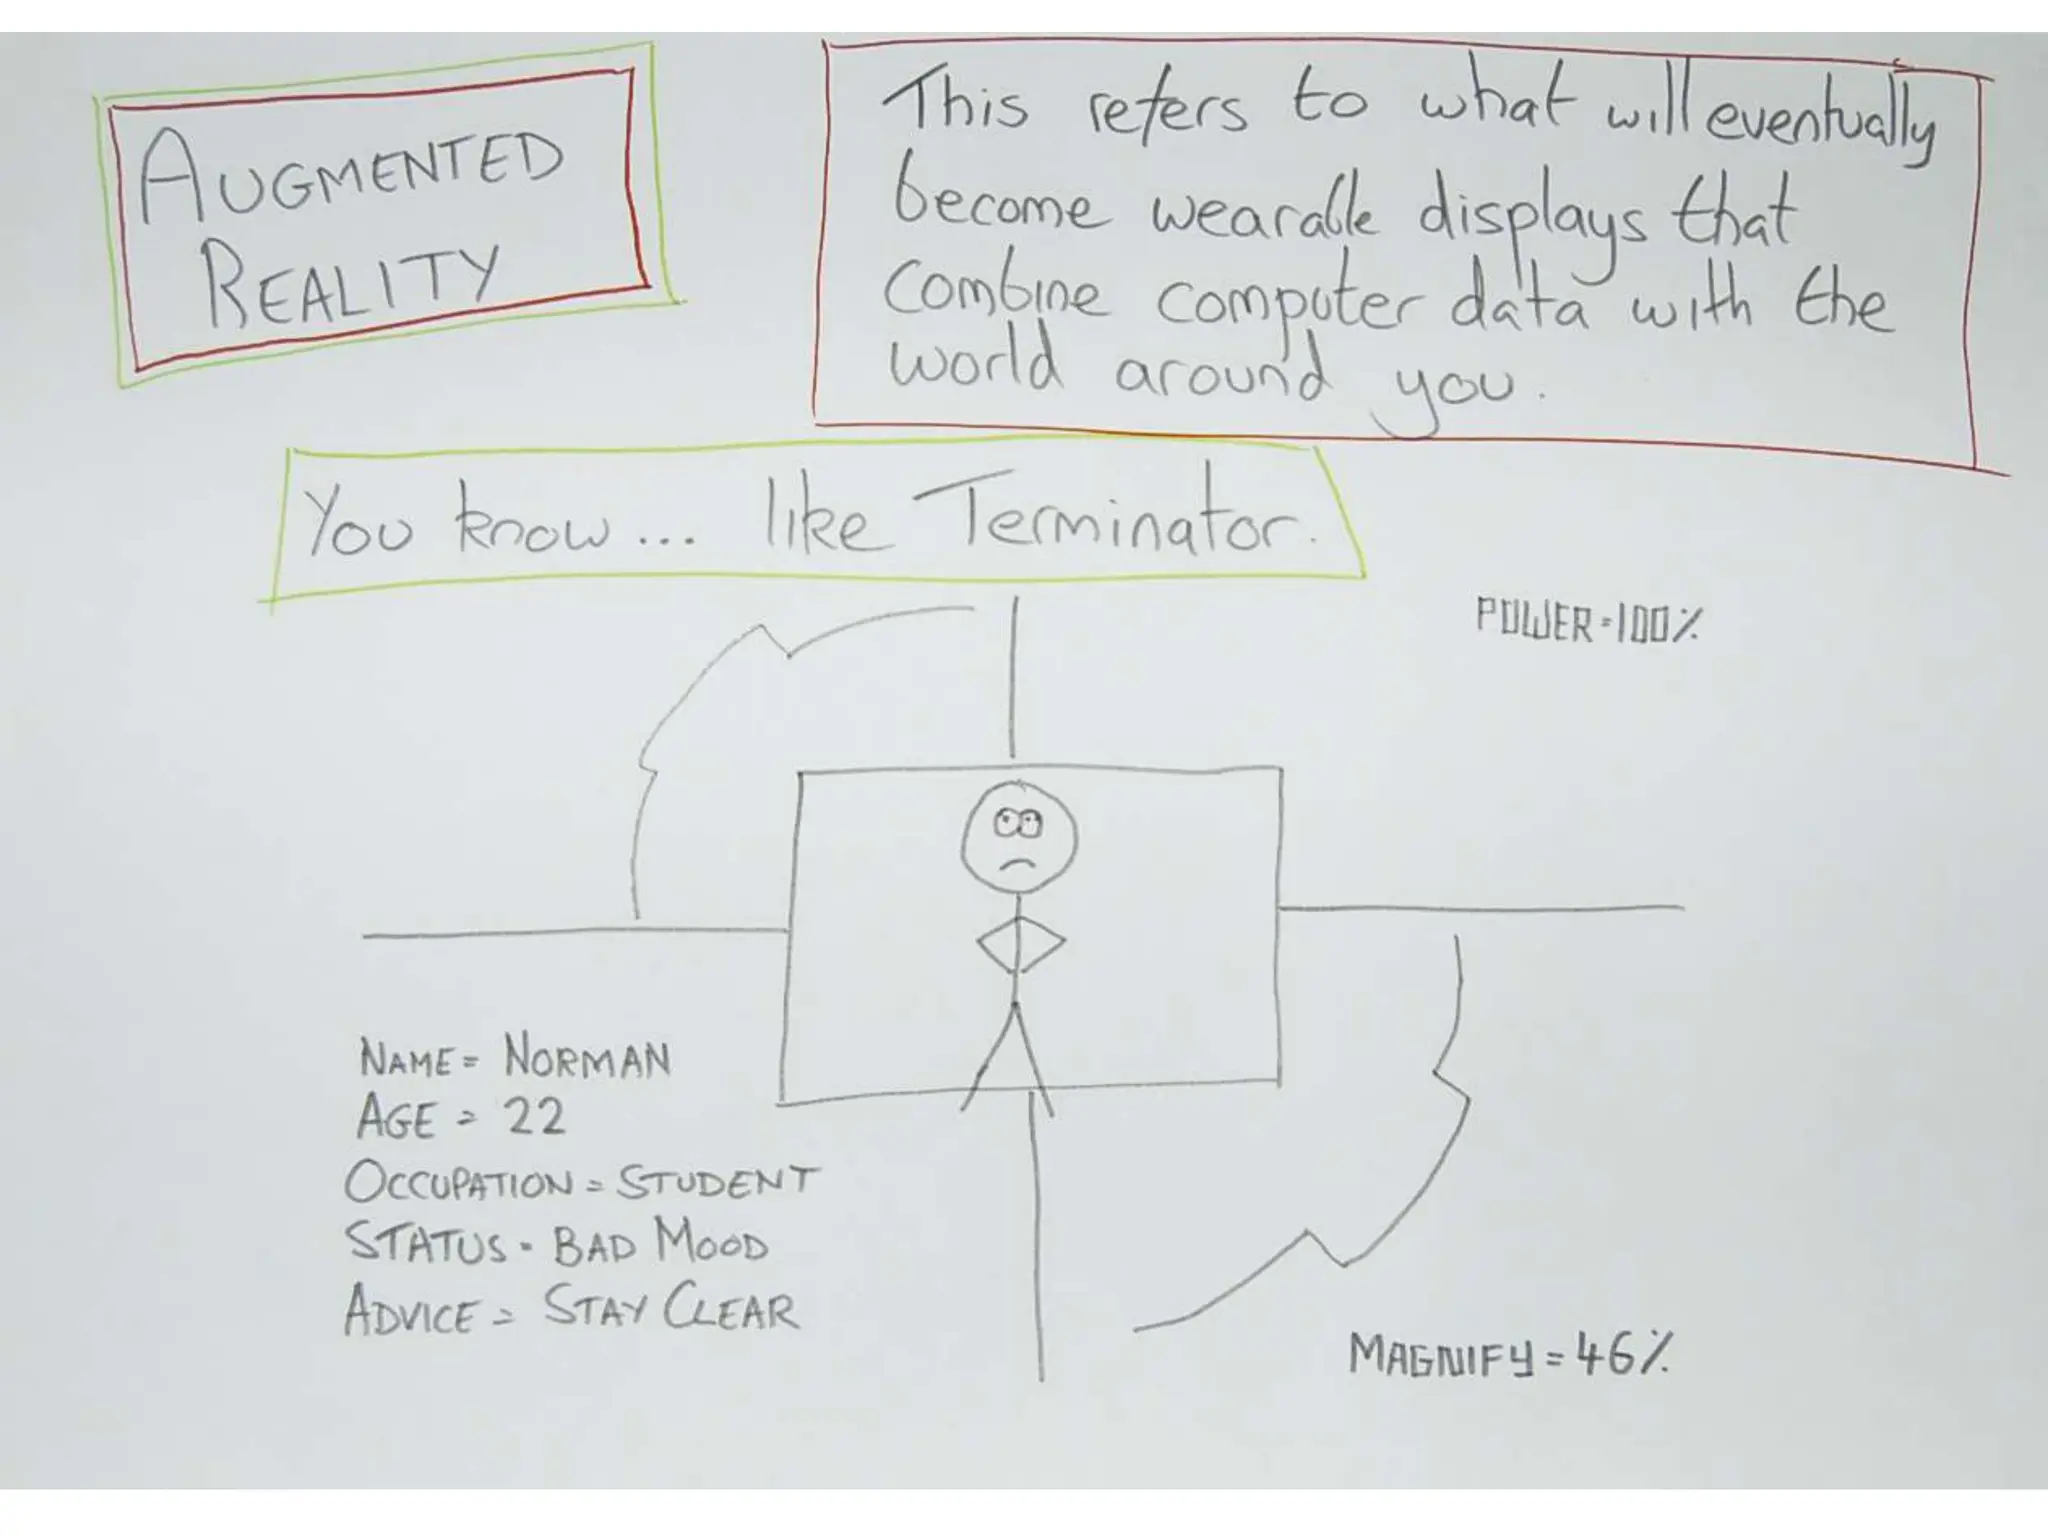 AUGMENTED
REALITY
This refers to what will eventually
become wearable displays that
combine computer data with the
world around you.
You know... like Terminator.
POWER=100%
NAME = NORMAN
AGE = 22
OCCUPATION = STUDENT
STATUS = BAD MOOD
ADVICE = STAY CLEAR
MAGNIFY = 46%